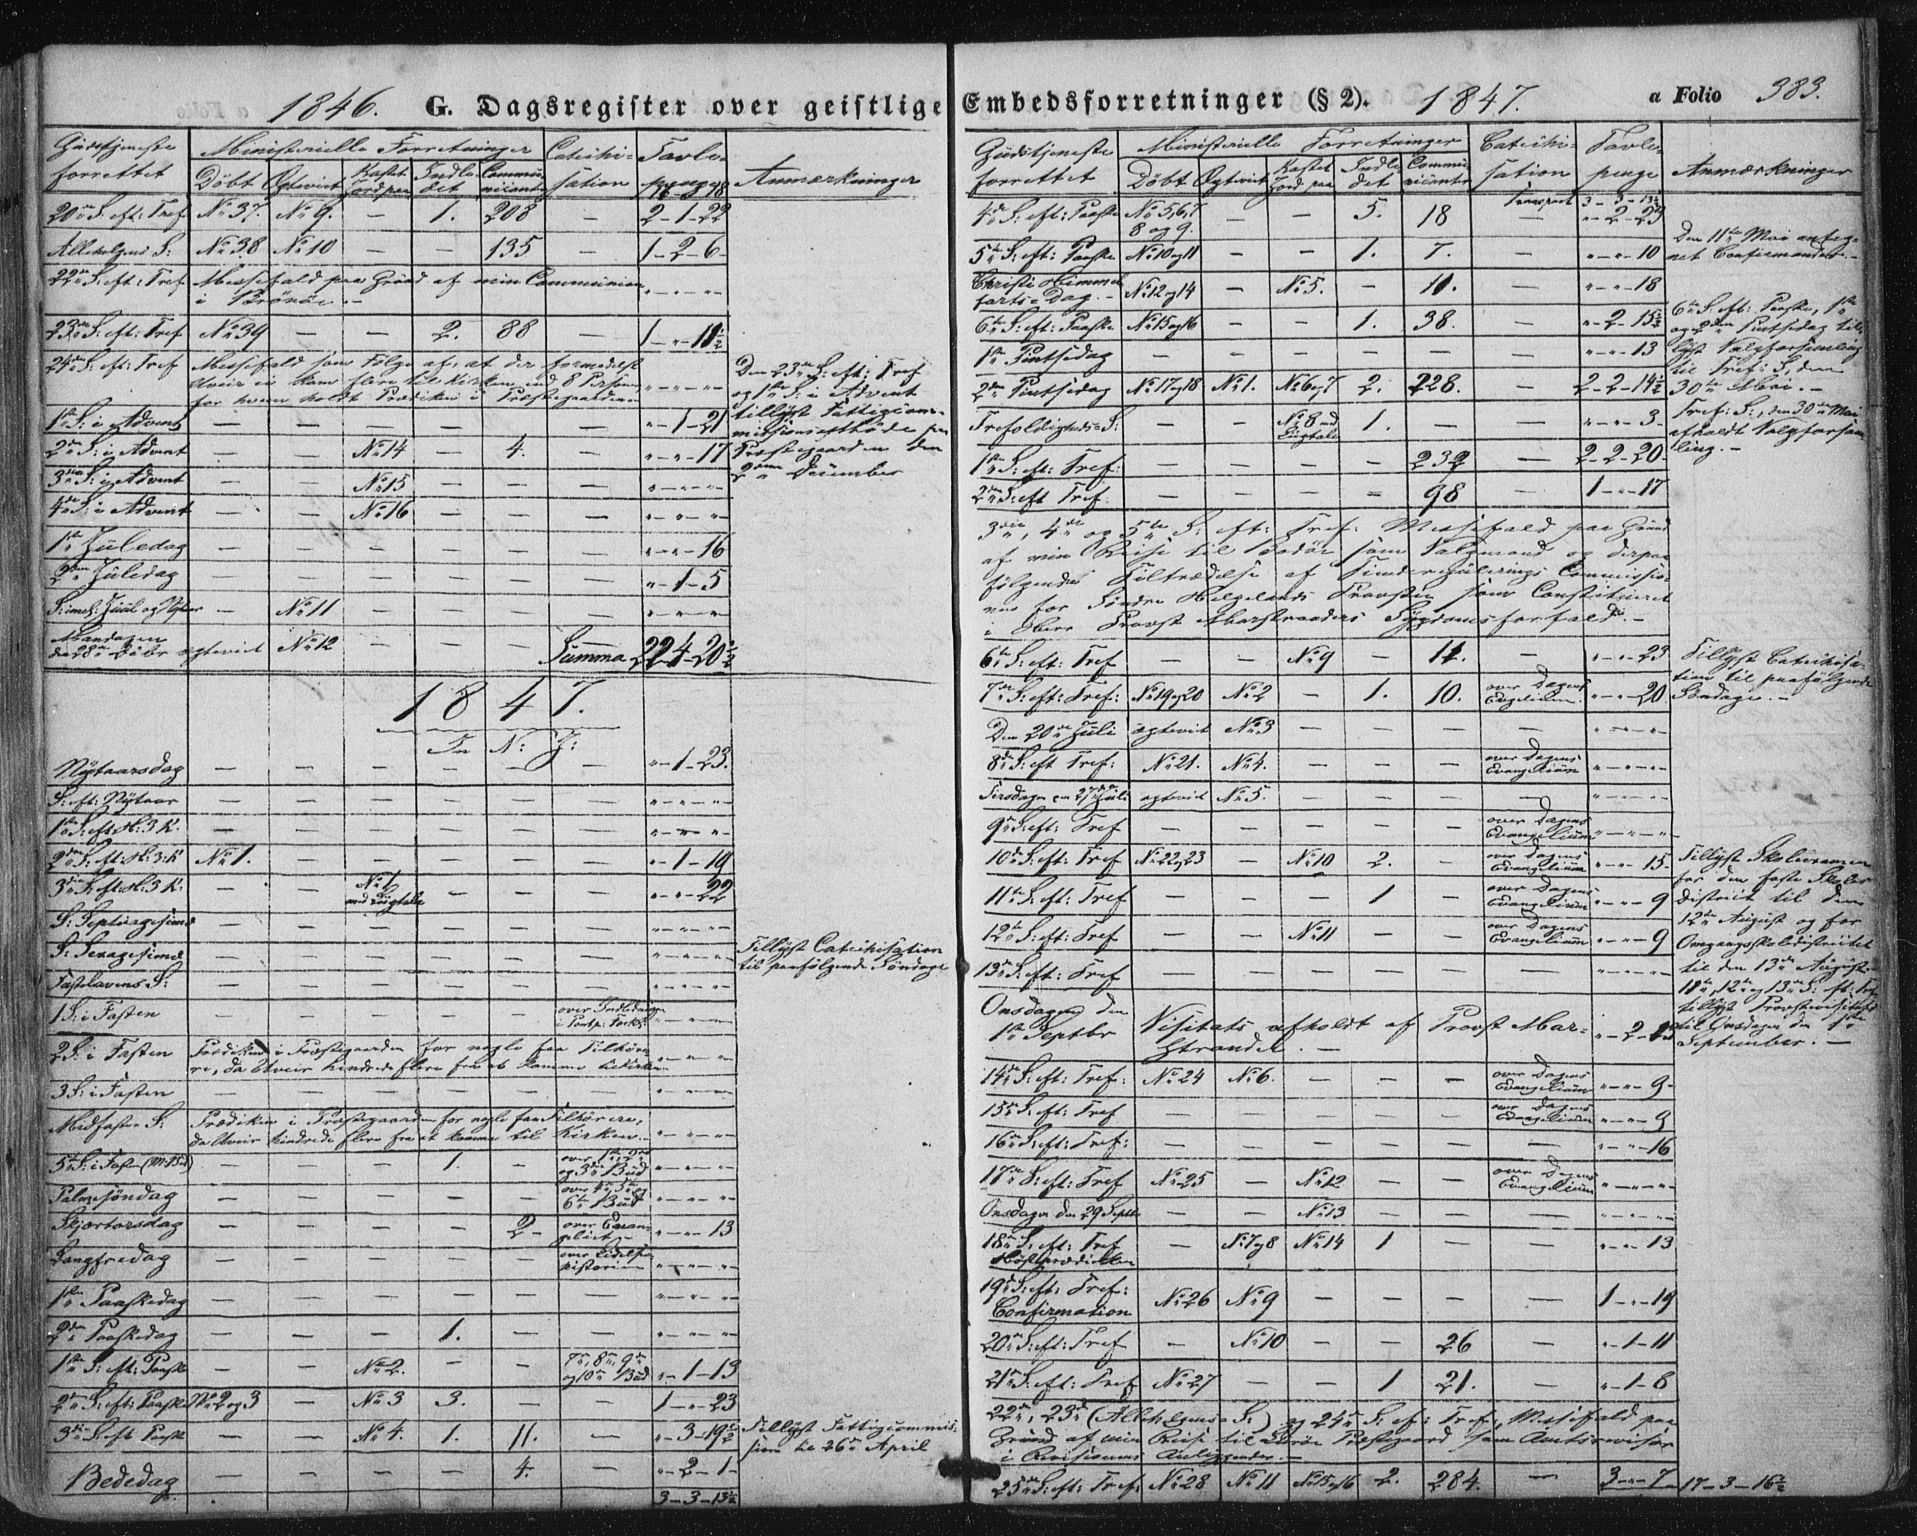 1846. G. Dagsregister over geistlige
Gudstjeneste Ministerielle Forretninger Catechi- Tavle-
forrettet Döbt Ogtevict Kastet Jord paa Indle det Commu nicanter sation penge Anmærkninger
20de S. eft: Tref No 37. No 9. — 1. 208 2-1-22
Allehelgens S: No 38 No 10 — — 135 — 1-2-6
22de S. eft: Tref Messefald paa Grund af min Communion
i Brönöe. — „-„-„
23de S. eft: Tref No 39 — — 2. 88 — 1-„-11½
24de S. eft: Tref Messefald som Følge af, at der formedelst
Uveir ei kom flere til Kirken, end 8 Personer
for hvem holdt Prædiken i Præstegaarden „-„-„
Den 23de S: eft: Tref
og 1ste S: i Advent
tillyst Fattigcom-
missionsmöde paa
Præstegaarden den
2den December
1ste S: i Advent — — — — — — „-1-21
2den S: i Advent — — No 14 — 4. — „-„-17
3die S: i Advent — — No 15 — — — „-„-„
4de S: i Advent — — No 16 — — — „-„-„
1ste Juledag — — — — — — „-„-16
2den Juledag — — — — — — „-1-5
S: mel: Juul og Nytaar — No 11 — — — — „-„-„
Mandagen
den 28de Dcbr ogtevict No 12 — — — Summa 224-20½
1847.
In N: J:
Nytaarsdag — — — — — — „-1-23.
S: eft: Nytaar — — — — — — „-„-„
1ste S: eft: H: 3 K. — — — — — — „-„-„
2den S: eft: H: 3: K No 1. — — — — — „-1-19
3die S: eft: H: 3 K. — — No 1 med Liigtale — — — „-„-22
S: Septuagesima — — — — — — „-„-„
S: Sexagesima — — — — — — „-„-„ Tillyst Catechisation
til paafølgende Söndage
Fastelavens S: — — — — — — „-„-„
1 S: i Fasten — — — — — over Indledningen i Pontp: Forkl: „-„-„
2 S: i Fasten Prædiken i Præstegaarden for nogle faa Tilhöre-
re, da Uveir hindrede flere fra at komme til Kirken „-„-„
3 S: i Fasten — — — — — — „-„-„
Midfaste S. Prædiken i Præstegaarden for nogle faa Tilhörere,
da Uveir hindrede flere fra at komme til Kirken „-„-„
5te S: i Fasten — — — 1. — over 1ste, 2den og 3die Bud „-„-„
Palmesöndag — — — — — over 4de, 5te og 6te Bud „-„-„
Skjærtorsdag — — — — 2 over Evangeliet „-„-13
Langfredag — — — — — over Lidelseshistorien „-„-„
1ste Paaskedag — — — — — — „-„-„
2den Paaskedag — — — 1. — — „-„-„
1ste S. eft: Paaske — — No 2. — — 7de, 8de, 9de og 10de Bud „-1-13
2den S: eft: Paaske No 2 og 3 — No 3 3. — — 1-„-23
3die S: eft: Paaske — — No 4. 1. 11. — „-3-19½ Tillyst Fattigcommis-
sion til 26de April
Bededag 4. — „-2-1-
3-3-13½
Embedsforretninger (§ 2). 1847. a Folio 383.
Gudstjeneste Ministerielle Forretninger Catechi- Tavle-
forrettet Döbt Ogtevict Kastet Jord paa Indle det Commu nicanter sation penge Anmærkninger
Transport 3-3-13½
4de S. eft: Paaske No 5, 6, 7 8 og 9. — — 5. 18 „-2-23
5te S. eft: Paaske No 10 og 11 — — 1. 7. — „-„-10 Den 11te Mai anteg-
net Confirmander. —
Christi Himmel
farts-Dag. — No 12 og 14 — No 5. — 11. — „-„-18
6te S: eft: Paaske No 15 og 16 — — 1. 38. — „-2-15½ 6te S: eft: Paaske, 1ste
og 2den Pintsedag til-
lyst Valgforsamling
til Tref: S, den
30te Mai. —
1ste Pintsedag — — — — — — „-„-13
2den Pintsedag No 17 og 18 No 1. No 6 og 7 2. 228. — 2-2-14½
Trefoldigheds-S: — — No 8 md Liigtale 1. — — „-„-3 Tref: S:, den 30te Mai
afholdt Valgforsam-
ling. —
1ste S: eft: Tref: — — — — 232 — 2-2-20
2den S: eft Tref — — — — 98 — 1-„-17
3die, 4de og 5te S: eft: Tref: Messefald paa Grund
af min Reise til Bodöe som Valgmand og derpaa
følgende Tiltrædelse af Commissio-
nen for Söndre Helgelands Provstie som Constitueret
i Herr Provst Marstranders Sygdomsforfald. —
6te S. eft: Tref — — No 9 — 11. — „-„-23 Tillyst Catechisa-
tion til paafølgende
Söndage. —
7de S: eft: Tref: No 19 og 20 No 2 — 1. 10. over Dagens Evangelium. „-„-20.
Den 20de Juli ogtevict No 3 — — — — „-„-„
8de S: eft Tref: No 21. No 4. — — — over Dagens Evangelium „-„-„
Tirsdagen den 27de Juli ogtevict No 5. — — — — „-„-„
9de S: eft: Tref — — — — — over Dagens Evangelium „-„-„
10de S: eft: Tref No 22 og 23 — No 10 2. — over Dagens Evangelium „-„-15- Tillyst Skoleexamen
for den faste Skoles
district til den
12te August og for
Omgangsskoledistrictet
til den 13de August. —
11te S. eft: Tref — — — 1 — over Dagens Evangelium „-„-9
12te S. eft: Tref — — No 11 — — over Dagens Evangelium „-„-9
13de S: eft: Tref — — — — — — „-„-„ 11te, 12te og 13de S: eft: Tref
tillyst Provstevisitats
til Onsdagen den 1ste
September. —
Onsdagen den
1ste Septbr Visitats afholdt af Provst Mar-
strander. —
14de S: eft: Tref: No 24 No 6. — — — over Dagens Evangelium „-„-9-
15de S: eft: Tref — — — — — over Dagens Evangelium „-„-9
16de S: eft: Tref: — — — — — — „-„-16
17de S: eft: Tref No 25 — No 12 — — over Dagens Evangelium „-„-„
Onsdagen den 29 Septbr — — No 13 — — — „-„-„
18de S. eft: Tref
Höstprædiken — No 7 og 8 No 14 1 — — „-„-13
19de S: eft: Tref:
Confirmation No 26 No 9 — — — — 1-„-19
20de S: eft: Tref — No 10 — — 26 — „-1-11
21de S. eft: Tref No 27 — — 1 21. — „-1-8
22de, 23de (Allehelgens-S:) og 24de S. ef: Tref, Messefald paa
Grund af min Reise til Præstegaard som Amtsrevisor
i Revisionens Anliggender. —
25de S: eft: Tref: No 28 No 11 No 15 og 16 2. 284. — 3-„-7 17-3-16½